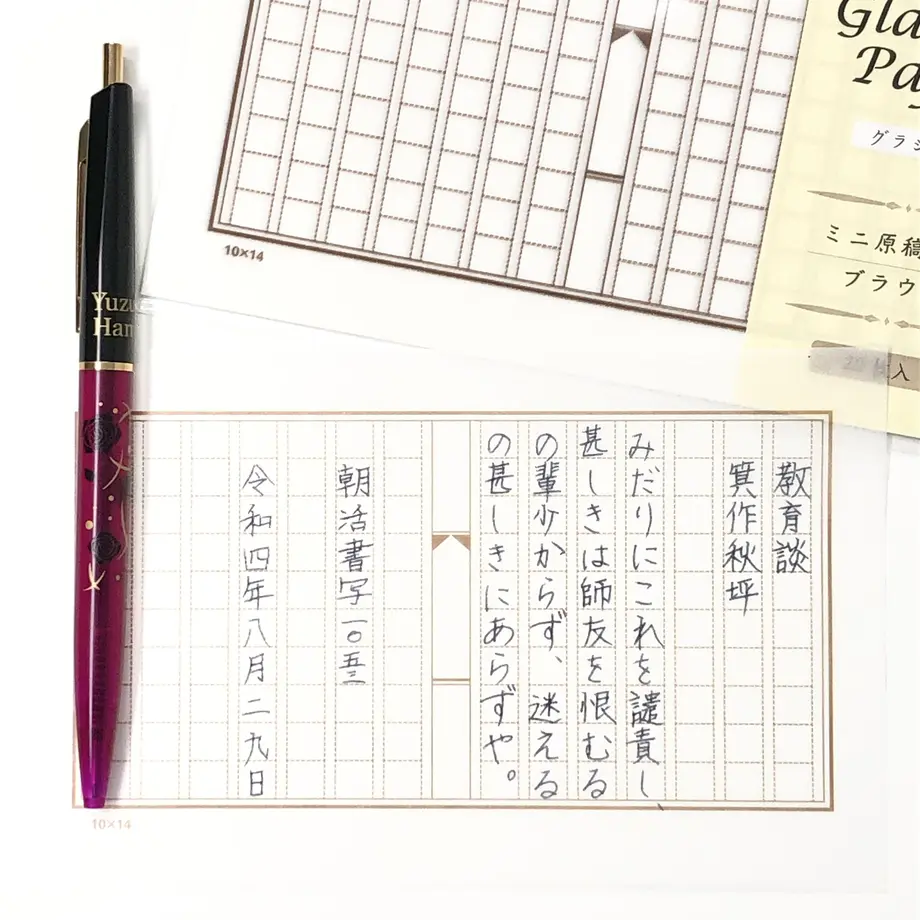 教育談
箕作秋坪
みだりにこれを譴責し、
甚しきは師友を恨むる
の輩少からず、迷える
の甚しきにあらずや。
朝活書写一〇五三
令和四年八月二九日
10×14
10×14
Yuzu
Han
ミニ原稿
ブラウ
入